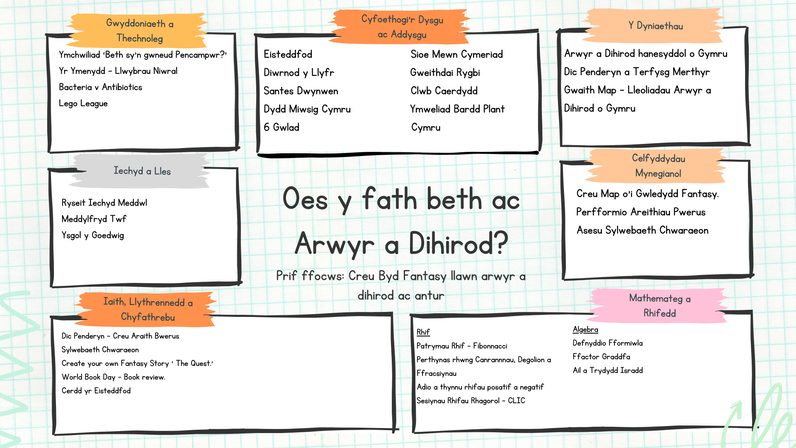 Gwyddoniaeth a
Thechnoleg
Ymchwiliad 'Beth sy'n gwneud Pencampwr?'
Yr Ymenydd - Llwybrau Niwral
Bacteria v Antibiotics
Lego League
Cyfoethogi'r Dysgu
ac Addysgu
Eisteddfod
Diwrnod y Llyfr
Santes Dwynwen
Dydd Miwsig Cymru
6 Gwlad
Sioe Mewn Cymeriad
Gweithdai Rygbi
Clwb Caerdydd
Ymweliad Bardd Plant
Cymru
Y Dyniaethau
Arwyr a Dihirod hanesyddol o Gymru
Dic Penderyn a Terfysg Merthyr
Gwaith Map - Lleoliadau Arwyr a
Dihirod o Gymru
Iechyd a Lles
Ryseit Iechyd Meddwl
Meddylfryd Twf
Ysgol y Goedwig
Oes y fath beth ac
Arwyr a Dihirod?
Prif ffocws: Creu Byd Fantasy llawn arwyr a
dihirod ac antur
Celfyddydau
Mynegianol
Creu Map o'i Gwledydd Fantasy.
Perfformio Areithiau Pwerus
Asesu Sylwebaeth Chwaraeon
Iaith, Llythrennedd a
Chyfathrebu
Dic Penderyn - Creu Araith Bwerus
Sylwebaeth Chwaraeon
Create your own Fantasy Story ' The Quest.'
World Book Day - Book review.
Cerdd yr Eisteddfod
Mathemateg a
Rhifedd
Rhif
Patrymau Rhif - Fibonnacci
Perthynas rhwng Canrannau, Degolion a
Ffracsiynau
Adio a thynnu rhifau posatif a negatif
Sesiynau Rhifau Rhagorol - CLIC
Algebra
Defnyddio Fformiwla
Ffactor Graddfa
Ail a Trydydd Isradd